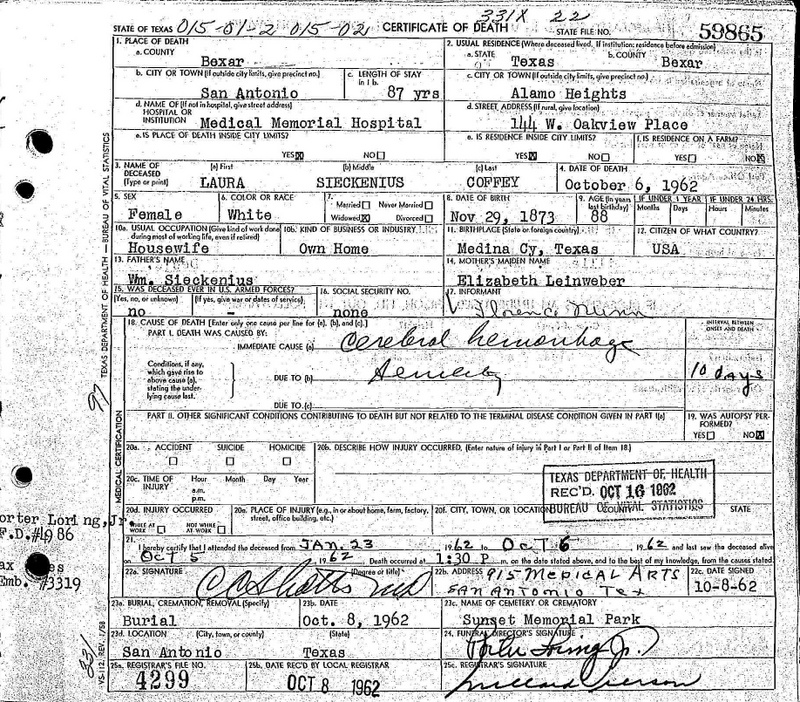 331X 22
STATE OF TEXAS 015-01-2 015-02 CERTIFICATE OF DEATH STATE FILE NO. 59865
1. PLACE OF DEATH
a. COUNTY
Bexar
2. USUAL RESIDENCE (Where deceased lived. If institution: residence before admission)
a. STATE b. COUNTY
Texas Bexar
b. CITY OR TOWN (If outside city limits, give precinct no.) c. LENGTH OF STAY in 1 b.
San Antonio 87 yrs
c. CITY OR TOWN (If outside city limits, give precinct no.)
Alamo Heights
d. NAME OF (If not in hospital, give street address)
HOSPITAL OR
INSTITUTION Medical Memorial Hospital
d. STREET ADDRESS (If rural, give location)
144 W. Oakview Place
e. IS PLACE OF DEATH INSIDE CITY LIMITS?
YES☒ NO☐
e. IS RESIDENCE INSIDE CITY LIMITS? f. IS RESIDENCE ON A FARM?
YES☒ NO☐ YES☐ NO☒
3. NAME OF DECEASED (a) First (b) Middle (c) Last 4. DATE OF DEATH
(Type or print) LAURA SIECKENIUS COFFEY October 6, 1962
5. SEX 6. COLOR OR RACE 7. Married☐ Never Married☐ 8. DATE OF BIRTH 9. AGE (In years last birthday) IF UNDER 1 YEAR IF UNDER 24 HRS.
Months Days Hours Minutes
Female White Widowed☒ Divorced☐ Nov 29, 1873 88
10a. USUAL OCCUPATION (Give kind of work done during most of working life, even if retired) 10b. KIND OF BUSINESS OR INDUSTRY 11. BIRTHPLACE (State or foreign country) 12. CITIZEN OF WHAT COUNTRY?
Housewife Own Home Medina Cy, Texas USA
13. FATHER'S NAME 14. MOTHER'S MAIDEN NAME
Wm. Sieckenius Elizabeth Leinweber
15. WAS DECEASED EVER IN U.S. ARMED FORCES? 16. SOCIAL SECURITY NO. 17. INFORMANT
(Yes, no, or unknown) (If yes, give war or dates of service)
no - none Florence
18. CAUSE OF DEATH (Enter only one cause per line for (a), (b), and (c).) INTERVAL BETWEEN ONSET AND DEATH
PART I. DEATH WAS CAUSED BY:
IMMEDIATE CAUSE (a) Cerebral hemorrhage
Conditions, if any, which gave rise to above cause (a), stating the underlying cause last.
DUE TO (b) Senility 10 days
DUE TO (c)
PART II. OTHER SIGNIFICANT CONDITIONS CONTRIBUTING TO DEATH BUT NOT RELATED TO THE TERMINAL DISEASE CONDITION GIVEN IN PART I(a) 19. WAS AUTOPSY PERFORMED?
YES☐ NO☒
20a. ACCIDENT SUICIDE HOMICIDE 20b. DESCRIBE HOW INJURY OCCURRED. (Enter nature of injury in Part I or Part II of Item 18.)
20c. TIME OF INJURY Hour Month Day Year
a.m.
p.m.
TEXAS DEPARTMENT OF HEALTH
REC'D. OCT 16 1962
BUREAU OF VITAL STATISTICS
20d. INJURY OCCURRED 20e. PLACE OF INJURY (e.g., in or about home, farm, factory, street, office building, etc.) 20f. CITY, TOWN, OR LOCATION COUNTY STATE
WHILE AT WORK☐ NOT WHILE AT WORK☐
21. I hereby certify that I attended the deceased from JAN. 23 1962 to OCT 6 1962 and last saw the deceased alive
on OCT 5 1962. Death occurred at 1:30 P. m. on the date stated above, and to the best of my knowledge, from the causes stated.
22a. SIGNATURE (Degree or title) 22b. ADDRESS 22c. DATE SIGNED
MD 915 MEDICAL ARTS
SAN ANTONIO TEX 10-8-62
23a. BURIAL, CREMATION, REMOVAL (Specify) 23b. DATE 23c. NAME OF CEMETERY OR CREMATORY
Burial Oct. 8, 1962 Sunset Memorial Park
23d. LOCATION (City, town, or county) (State) 24. FUNERAL DIRECTOR'S SIGNATURE
San Antonio Texas Porter Loring Jr.
25a. REGISTRAR'S FILE NO. 25b. DATE REC'D BY LOCAL REGISTRAR 25c. REGISTRAR'S SIGNATURE
4299 OCT 8 1962
TEXAS DEPARTMENT OF HEALTH — BUREAU OF VITAL STATISTICS
MEDICAL CERTIFICATION
VS-112, REV. 1/58
331
orter Loring, Jr
F.D.#1986
Emb. #3319